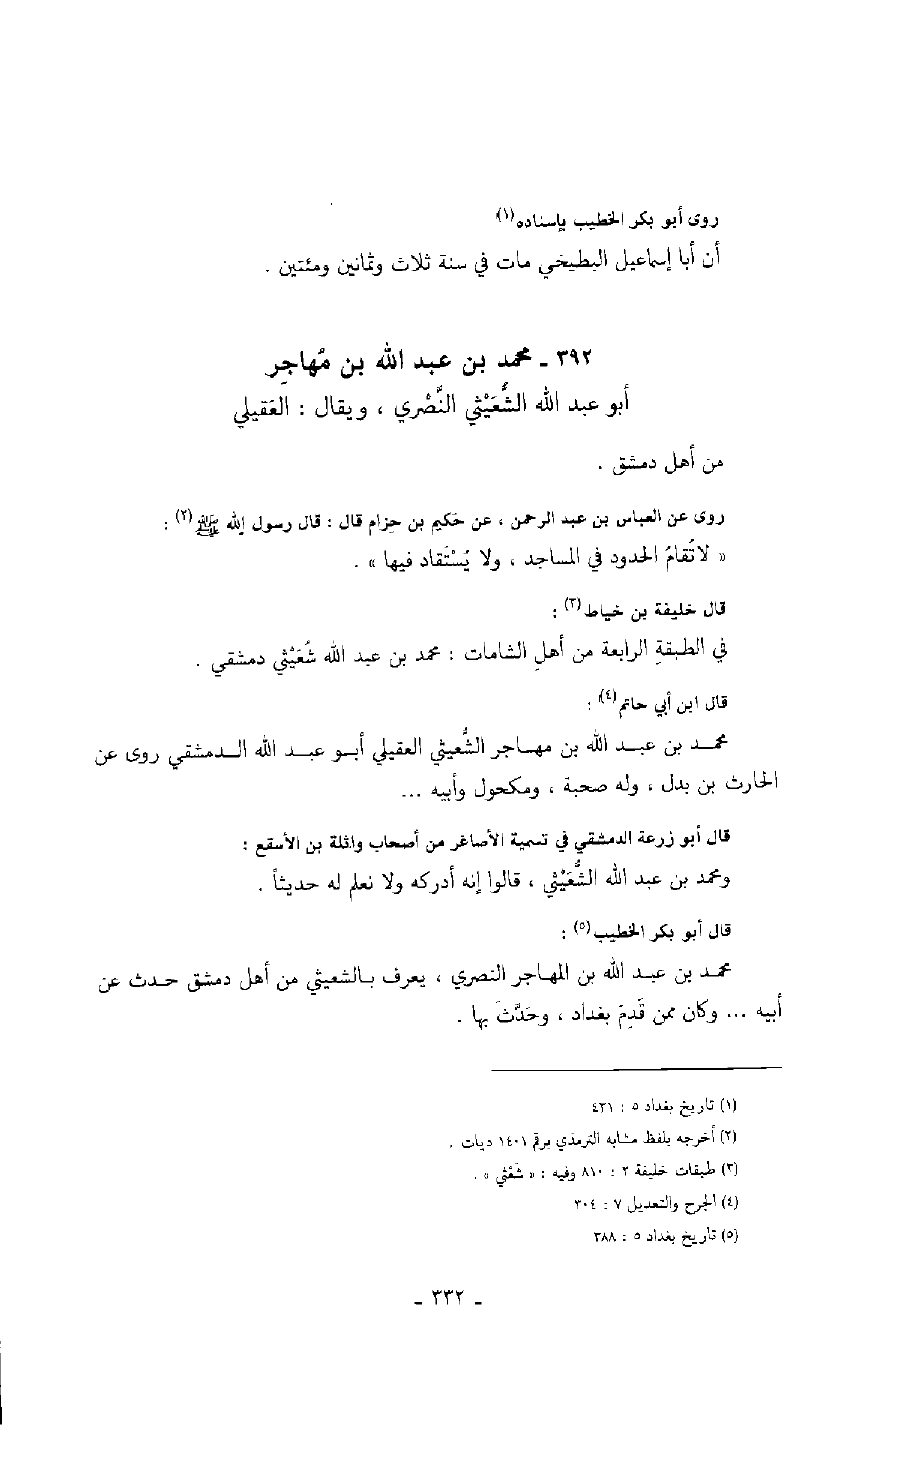 روى أبو بكر الخطيب بإسناده(١)
أن أبا إسماعيل البطيخي مات في سنة ثلاث وثمانين ومئتين .
٣٩٢ ـ محمد بن عبد الله بن مُهاجِر
أبو عبد الله الشُّعَيْثي النَّصْري ، ويقال : العَقيلي
من أهل دمشق .
روى عن العباس بن عبد الرحمن ، عن حَكيم بن حِزام قال : قال رسول الله ﷺ(٢) :
« لا تُقامُ الحدود في المساجد ، ولا يُسْتَقاد فيها » .
قال خليفة بن خياط(٣) :
في الطبقةِ الرابعة من أهلِ الشامات : محمد بن عبد الله شُعَيْثي دمشقي .
قال ابن أبي حاتم(٤) :
محمد بن عبد الله بن مهاجر الشُّعيثي العقيلي أبو عبد الله الدمشقي روى عن
الحارث بن بدل ، وله صحبة ، ومكحول وأبيه ...
قال أبو زرعة الدمشقي في تسمية الأصاغر من أصحاب واثلة بن الأسقع :
ومحمد بن عبد الله الشُّعَيْثي ، قالوا إنه أدركه ولا نعلم له حديثاً .
قال أبو بكر الخطيب(٥) :
محمد بن عبد الله بن المهاجر النصري ، يعرف بالشعيثي من أهل دمشق حدث عن
أبيه ... وكان ممن قَدِمَ بغداد ، وحَدَّثَ بها .
(١) تاريخ بغداد ٥ : ٤٣١
(٢) أخرجه بلفظ مشابه الترمذي برقم ١٤٠١ ديات .
(٣) طبقات خليفة ٢ : ٨١٠ وفيه : « شَعْثي » .
(٤) الجرح والتعديل ٧ : ٣٠٤
(٥) تاريخ بغداد ٥ : ٣٨٨
ـ ٣٣٢ ـ